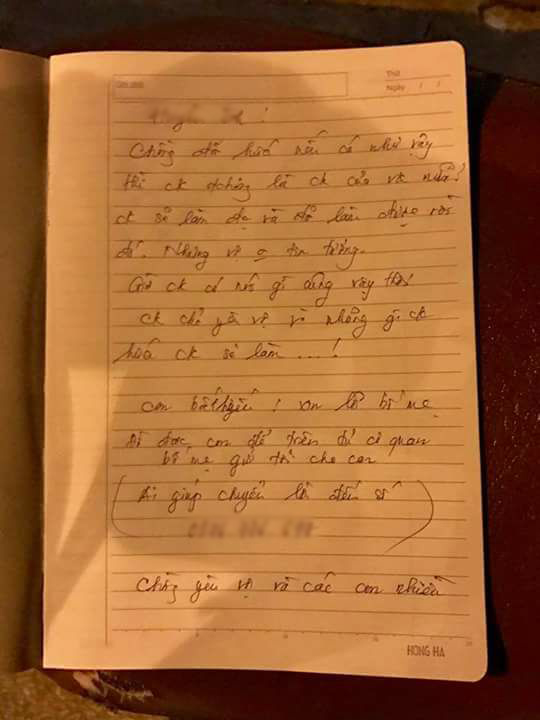 Thứ
Ngày / /
Chồng đã hứa nếu có như vậy
thì ck không là ck của vk nữa!
ck sẽ làm và đã làm được rồi
đó. Nhưng vk o tin tưởng.
Giờ ck có nói gì cũng vậy thôi
ck chỉ yêu vợ và những gì ck
hứa ck sẽ làm ....!
con bất hiếu! xin lỗi bố mẹ
con để trên tủ cơ quan
bố mẹ giữ cho con
(Ai giúp chuyển lời đến số
)
Chồng yêu vợ và các con nhiều
HONG HA